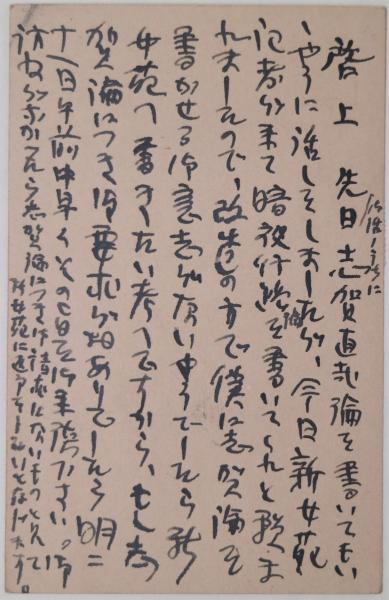 啓上　先日志賀直哉論を書いてもい
ゝやうに話しをしましたが、今日新女苑
記者が来て暗夜行路論を書いてくれと頼ま
れましたので、改造の方で僕に志賀論を
書かせる御意志がないやうでしたら新
女苑へ書きたい考へですから、もし志
賀論につき御要求がありでしたら明二
十一日午前中早くその旨を御来下さい。御
訪ねがなかつたら志賀論につき御請求はないものと見て
新女苑に返事をしたいと存じます。